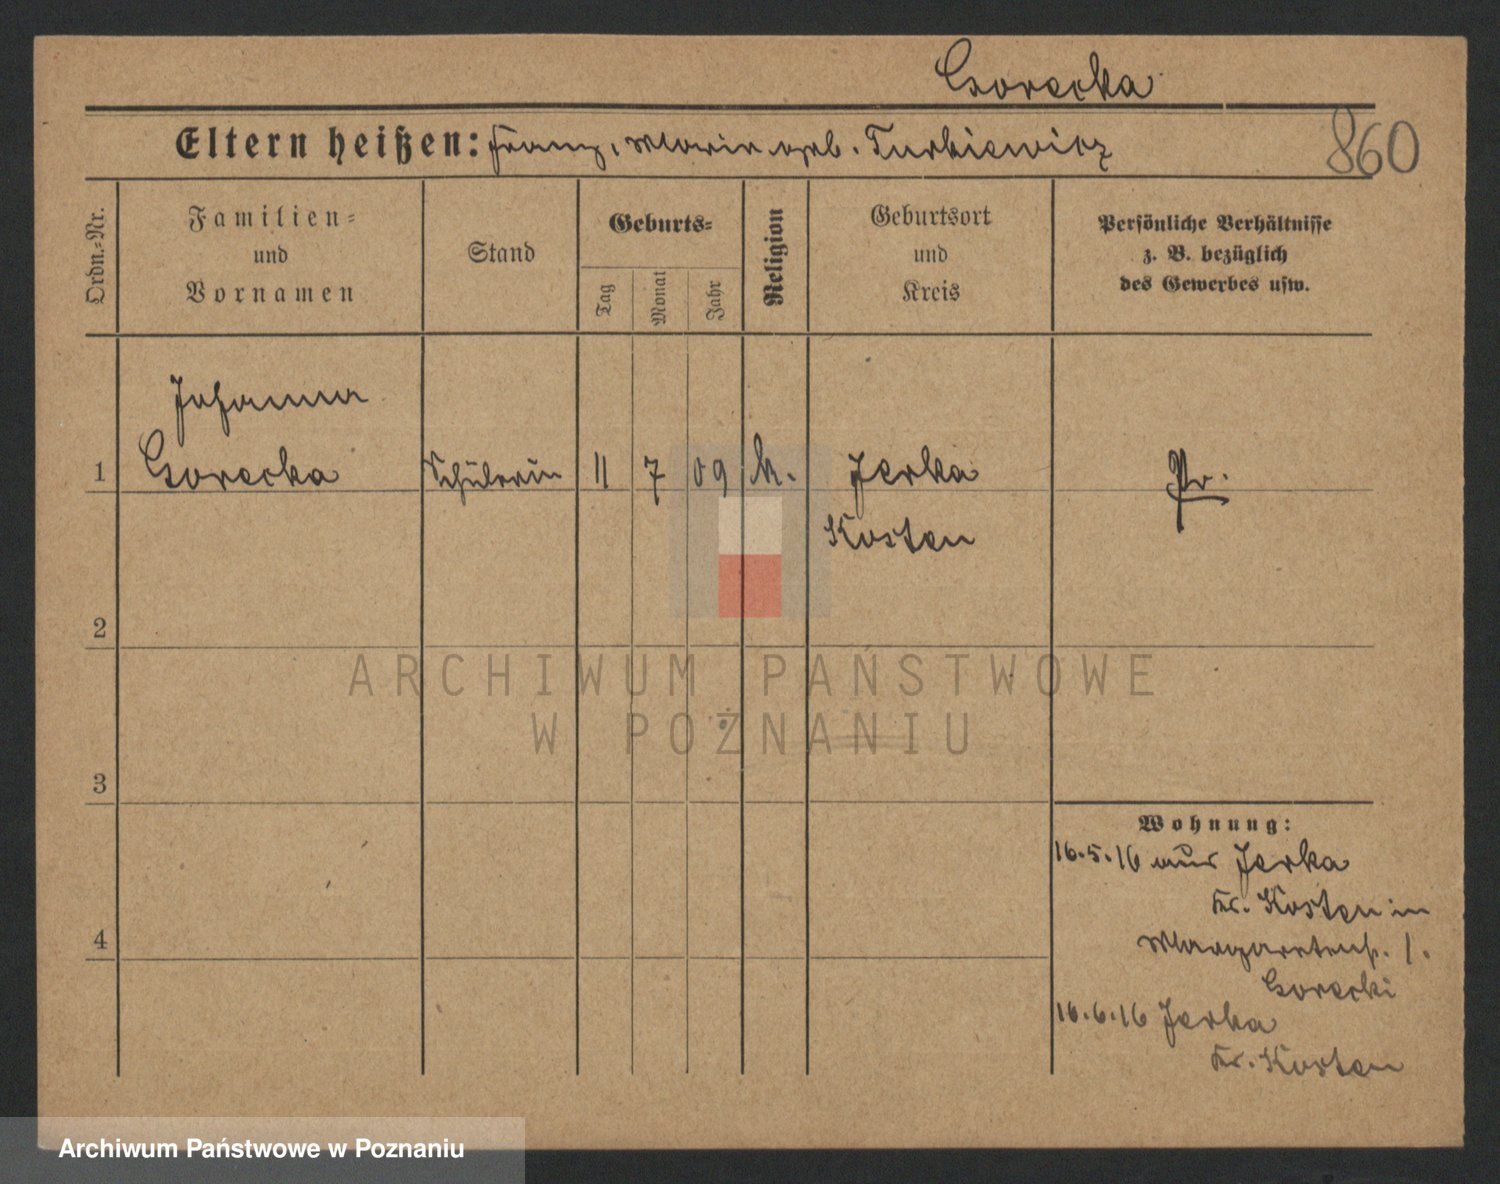 Gorecka
Eltern heißen: Franz, Maria geb. Turkiewicz
860
Ordn.=Nr.
Familien=
und
Vornamen
Stand
Geburts=
Tag
Monat
Jahr
Religion
Geburtsort
und
Kreis
Persönliche Verhältnisse
z. B. bezüglich
des Gewerbes usw.
Johanna
1 Gorecka Schülerin 11 7 09 k. Jerka Pr.
Kosten
2
3
4
Wohnung:
16.5.16 aus Jerka
Kr. Kosten in
Margaretenstr. 1.
Gorecki
16.6.16 Jerka
Kr. Kosten
ARCHIWUM PAŃSTWOWE
W POZNANIU
Archiwum Państwowe w Poznaniu